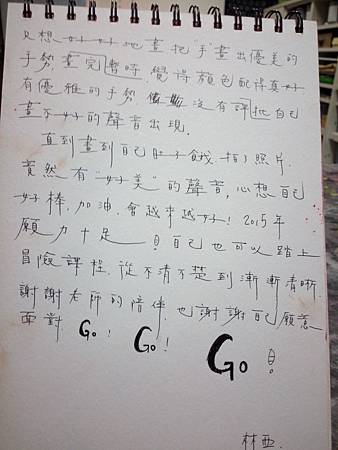 只想好好地畫把"手"畫出優美的
手勢畫完暫時覺得顏色配得真好
有優雅的手勢 沒有評批自己
畫不好的聲音出現.
直到畫到自己肚子餓.拍了照片.
竟然有"好美"的聲音,心想自己
好棒.加油.會越來越好!2015年
願力十足 自己也可以踏上
冒險課程.從不清不楚到漸漸清晰.
謝謝老師的陪伴也謝謝自己願意
面對 Go! Go! Go!
林亞.